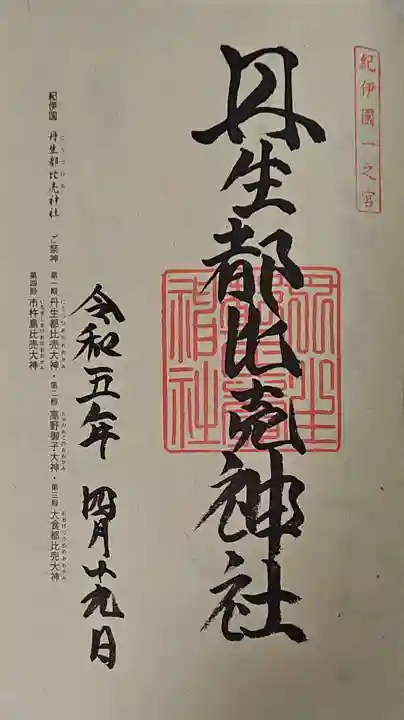 紀伊國一之宮
丹生都比売神社
丹生都比売神社
令和五年 四月十九日
紀伊国 丹生都比売神社 ご祭神 第一殿 丹生都比売大神・第二殿 高野御子大神・第三殿 大食都比売大神
第四殿 市杵島比売大神